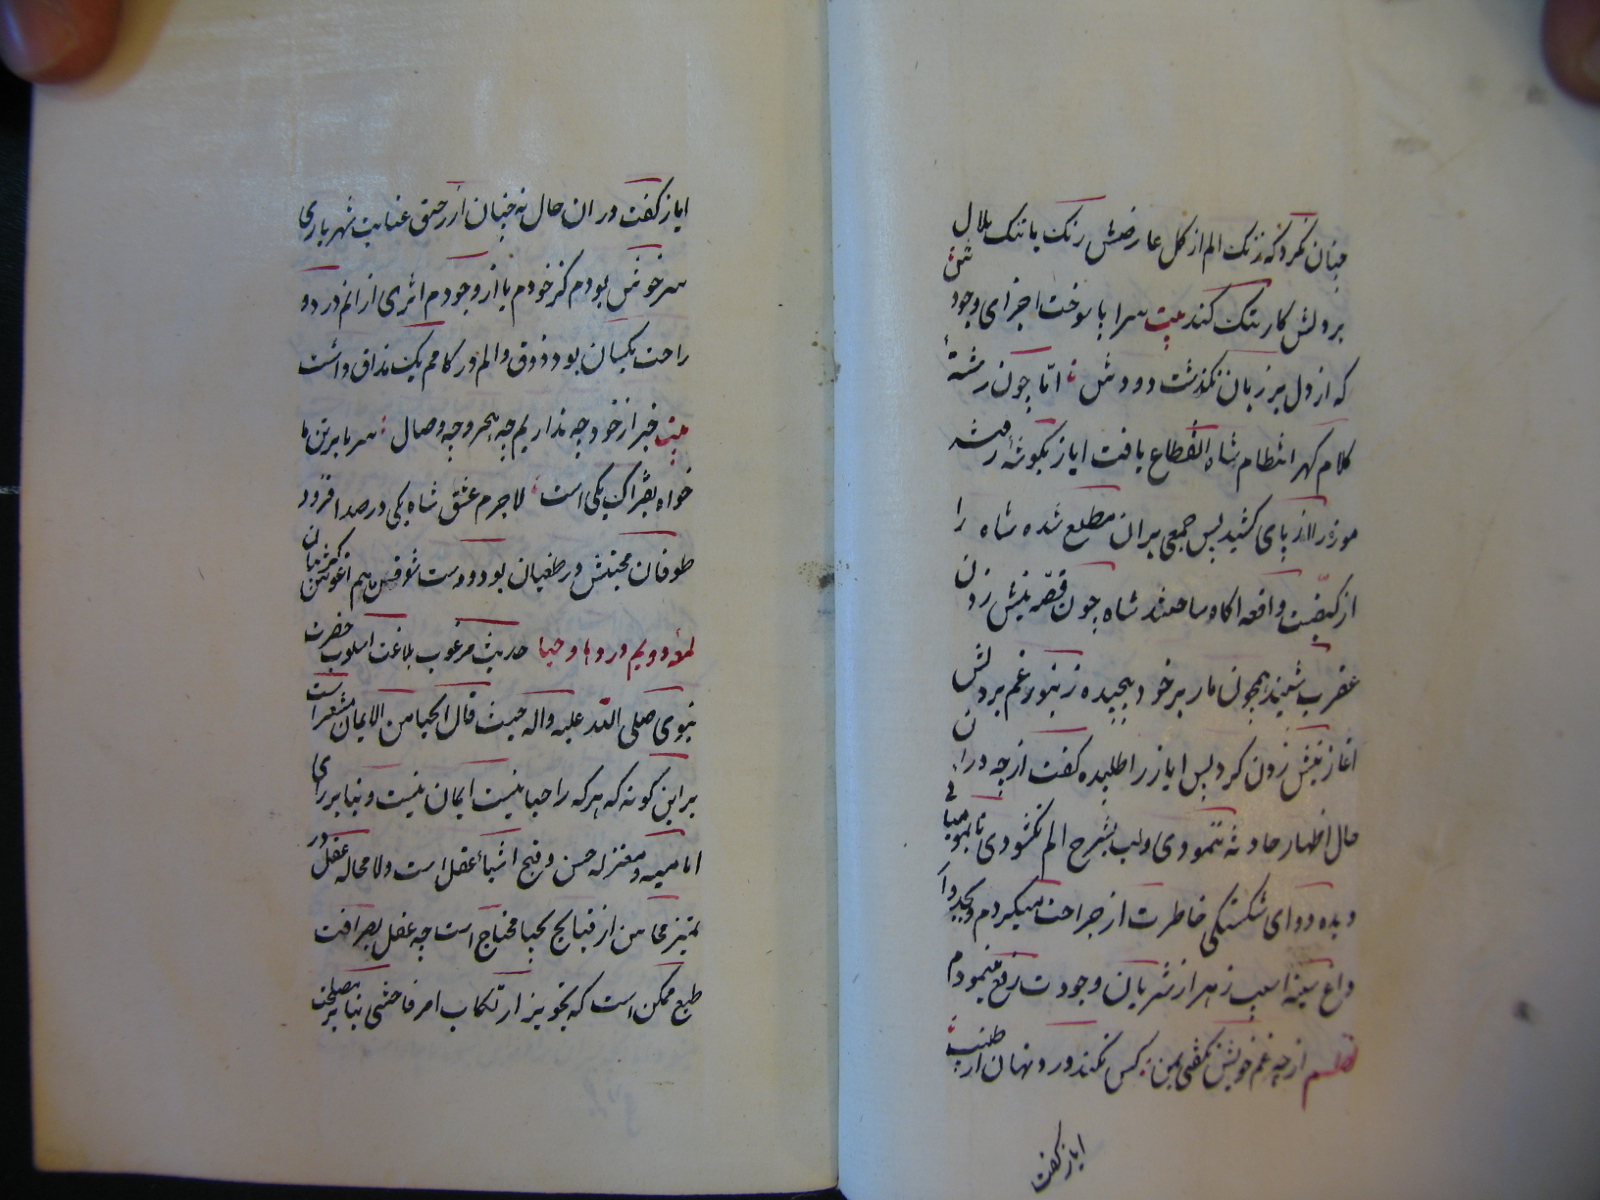 چنان نکرد که زنک الم از کل عارضش رنک یا تنک ملال
بر دلش کار تنک کند بیت سرا پا سوخت اجزای وجودش
که از دل بر زبان نکذشت دودش اما چون رشتهٔ
کلام کهر انتظام شاه انقطاع یافت ایاز بکوشهٔ رفته
موزه را از پای کشید پس جمعی بر ان مطلع شده شاه را
از کیفیت واقعه اکاه ساختند شاه چون قصه نیش زدن
عقرب شنید همچون مار بر خود پیچیده زنبور غم بر دلش
اغاز نیش زدن کرد پس ایاز را طلبیده کفت از چه در ان
حال اظهار حادثه ننمودی و لب بشرح الم نکشودی تا بمومیائی
دیده دوای شکستکی خاطرت از جراحت میکردم و بجدوار
داغ سینه اسیب زهر از شریان وجودت رفع مینمودم
نظم از چه غم خویش نکفتی بمن کس نکند درد نهان از طبیب
ایاز کفت
ایاز کفت در ان حال نه چنان از رحیق عنایت شهریاری
سرخوش بودم کز خودم یا از وجودم اثری از انم درد و
راحت یکسان بود و ذوق و الم در کامم یک مذاق داشت
بیت خبر از خود چه نداریم چه هجر و چه وصال سر ما بر تن ما
خواه بفتراک یکی است لاجرم عشق شاه یکی در صد افزود
طوفان محبتش در طغیان بود و دست شوقش باهم اغوش کریبان
لمعهٔ دویم در وفا و حیا حدیث مرغوب بلاغت اسلوب حضرت
نبوی صلی الله علیه واله حیث قال الحیا من الایمان مشعر است
بر این کونه که هر که را حیا نیست ایمان نیست و بنا بر رای
امامیه و معتزله حسن و قبح اشیا عقل است و لا محاله عقل در
تمیز محاسن از قبایح بحیا محتاج است چه عقل بصرافت
طبع ممکن است که تجویز ارتکاب امر فاحشی بنا بر مصلحت